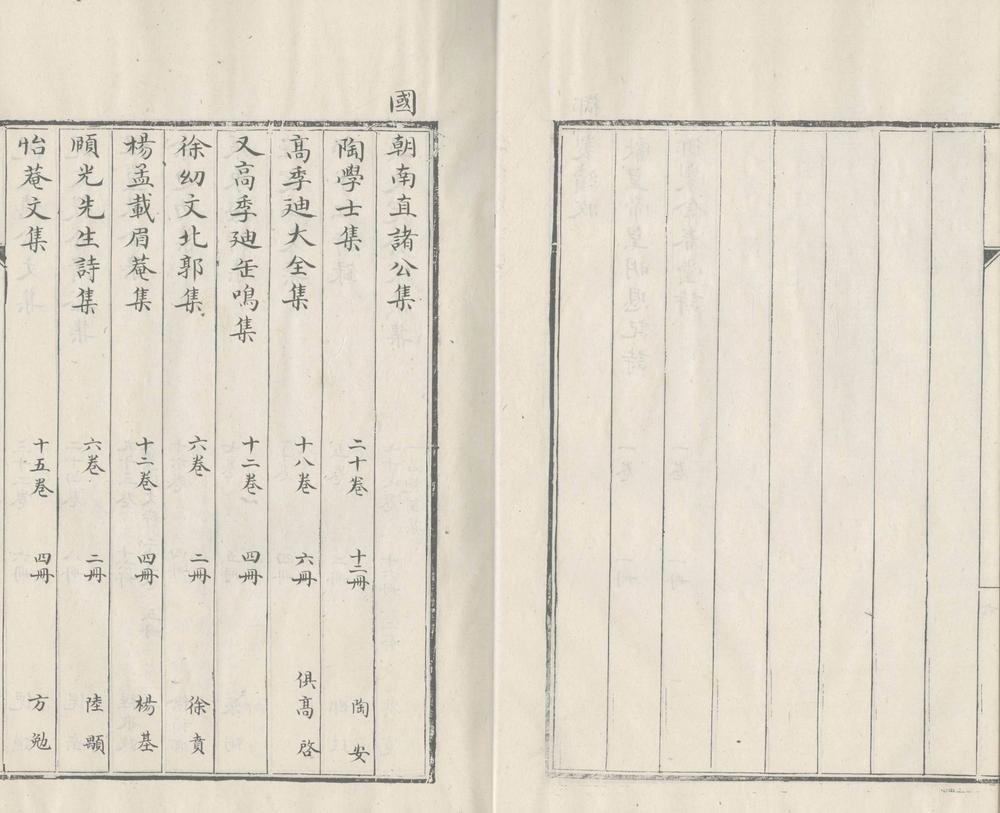 國朝南直諸公集
陶學士集 二十卷 十二冊 陶安
高季迪大全集 十八卷 六冊 俱高啓
又高季迪缶鳴集 十二卷 四冊
徐幼文北郭集 六卷 二冊 徐賁
楊孟載眉菴集 十二卷 四冊 楊基
頤光先生詩集 六卷 二冊 陸顒
怡菴文集 十五卷 四冊 方勉